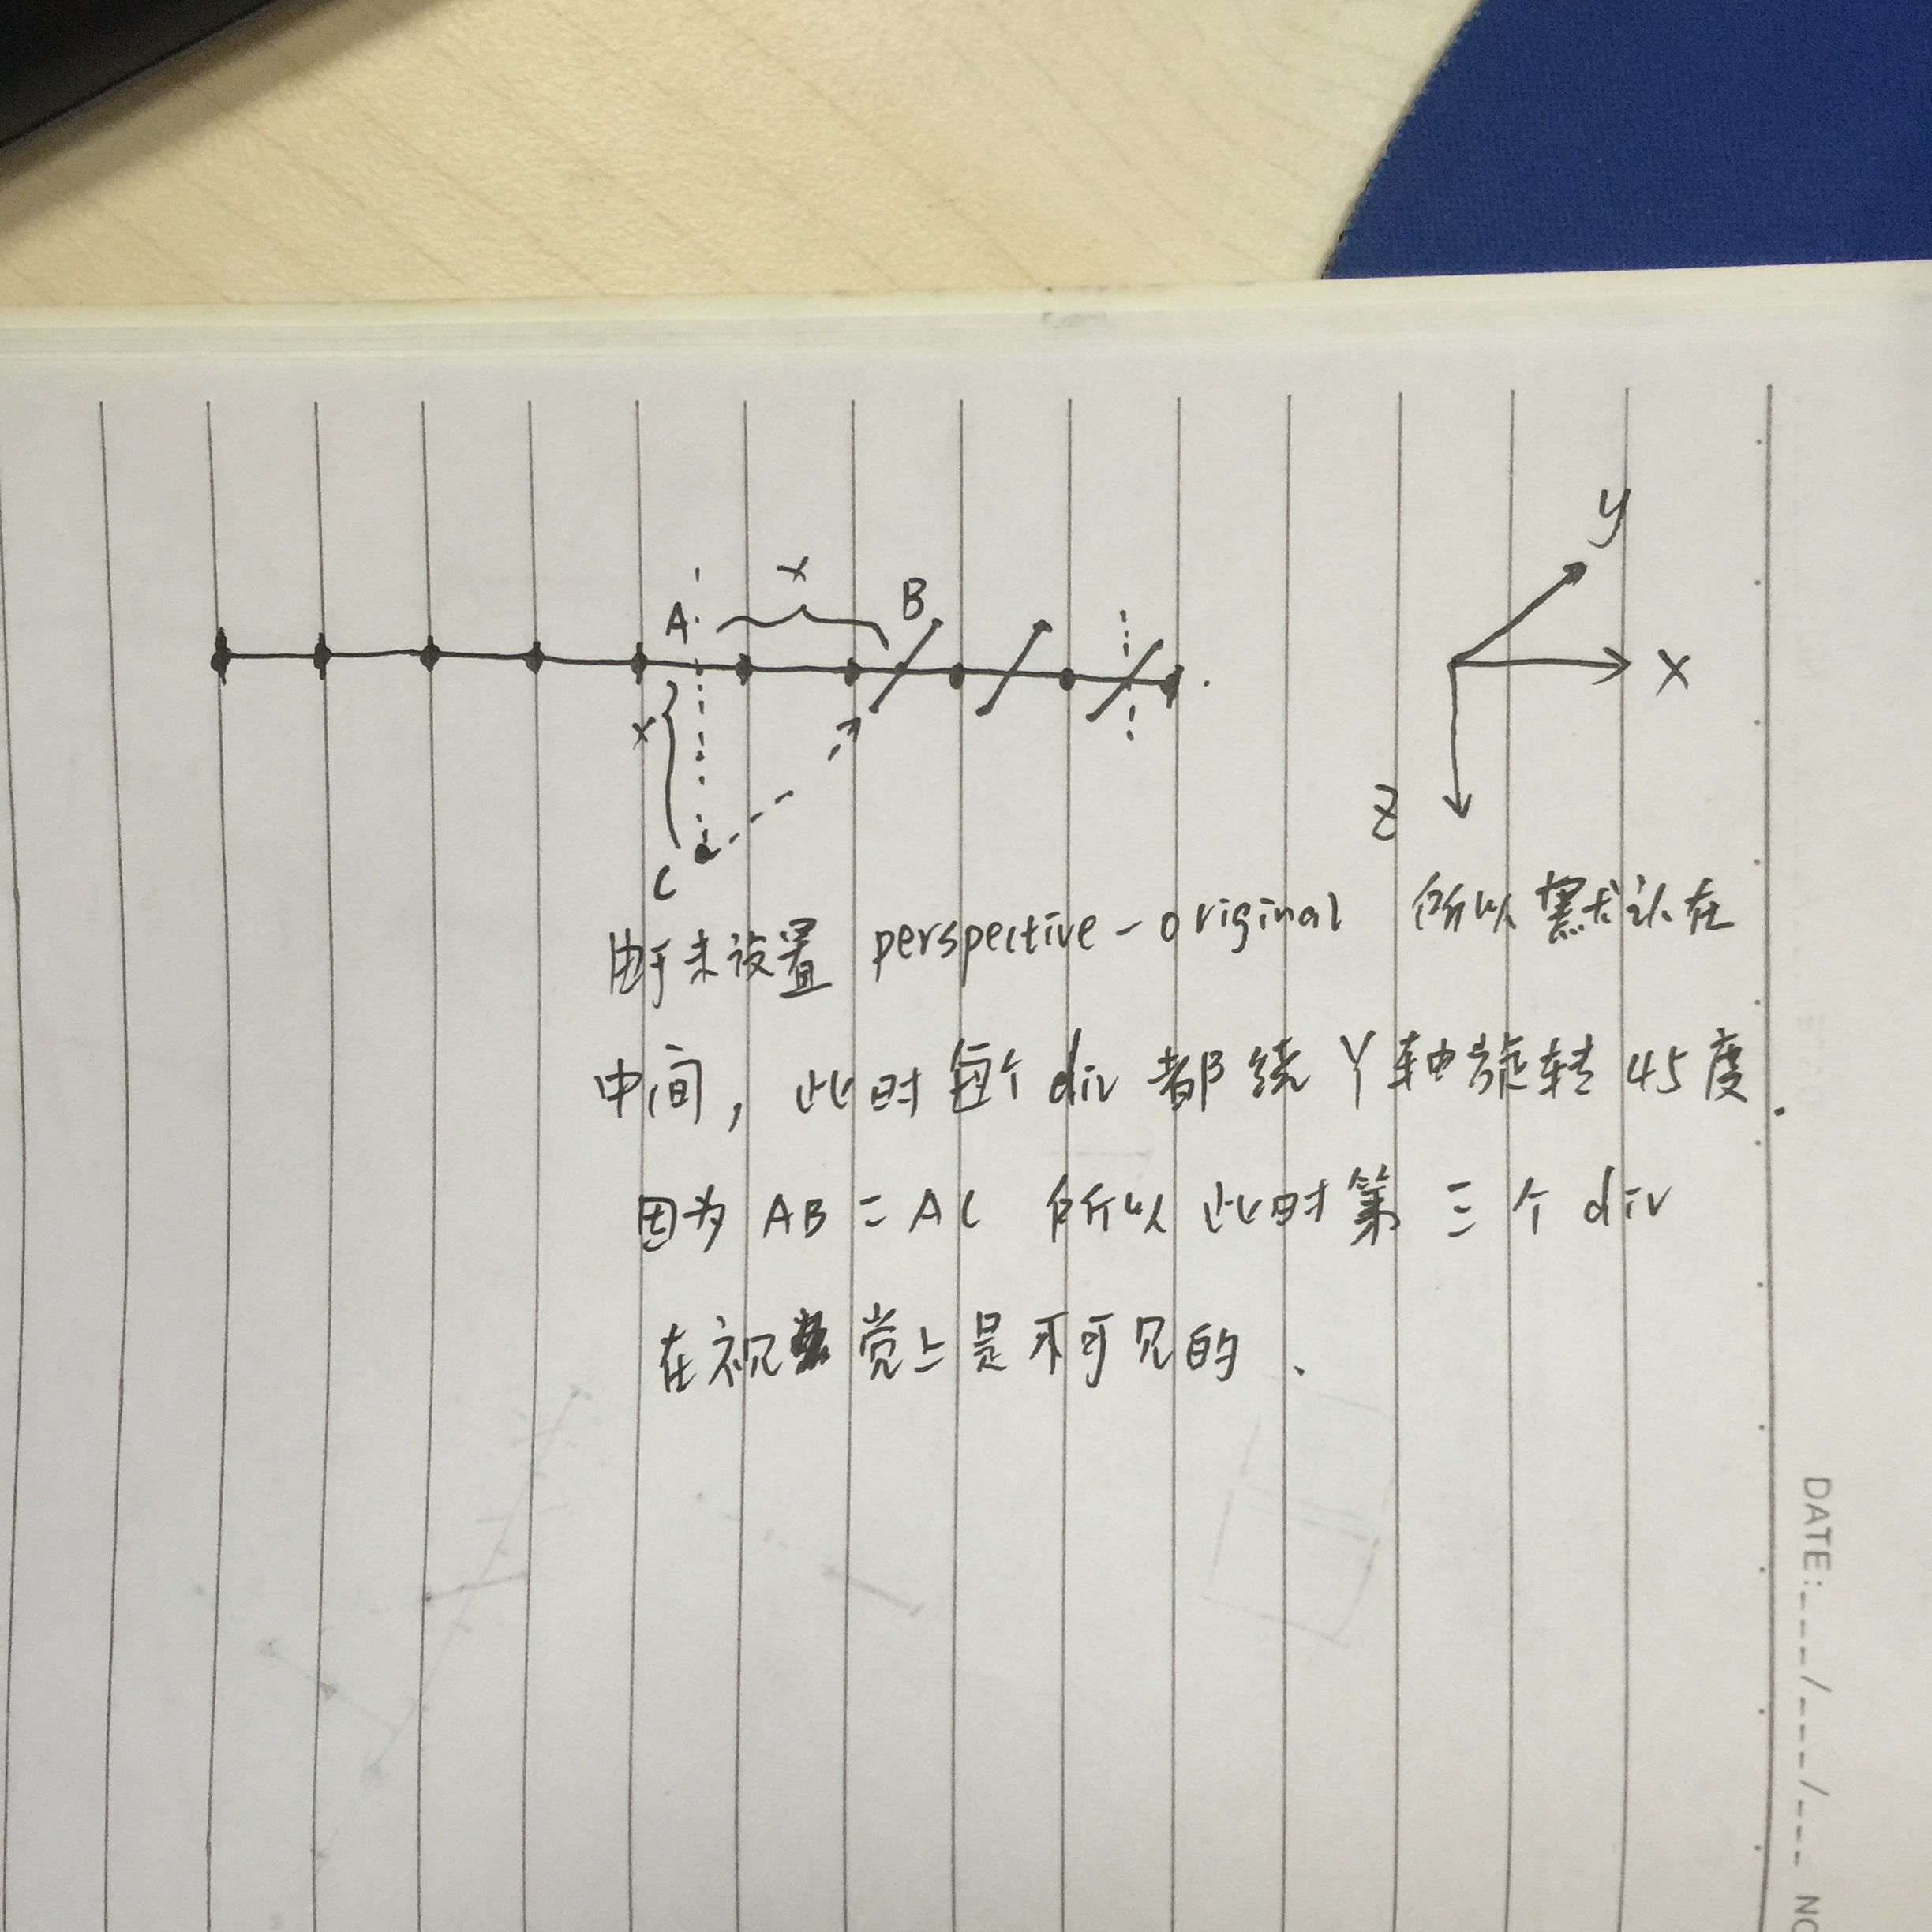 y
x
A
B
X
x
Z
C
由于未设置 perspective-original 所以默认在
中间，此时每个div都绕Y轴旋转45度.
因为 AB = AC 所以此时第三个 div
在视觉上是不可见的.
DATE:___/___/___ NO